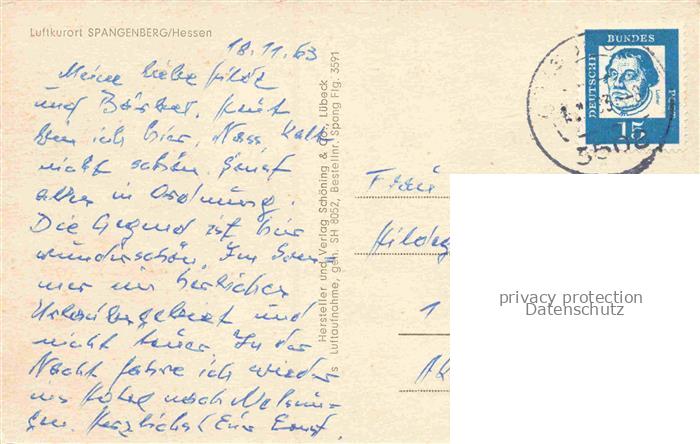 Luftkurort SPANGENBERG/Hessen
18.11.63
Meine liebe Hilde
und Bärbel, heut
bin ich hier. Nass, kalt
nicht schön. Sonst
alles in Ordnung.
Die Gegend ist hier
wunderschön. Im Som-
mer ein herrliches
Urlaubergebiet und
nicht teuer. In der
Nacht fahre ich wieder
ins Hotel nach Melsun-
gen. Herzlichst Euer Ernst.
Hersteller und Verlag Schöning & Co., Lübeck
Luftaufnahme, gen. SH 8052, Bestellnr. Spang Flg. 3591
DEUTSCHE
BUNDES
POST
15
3508
Frau
1
privacy protection
Datenschutz